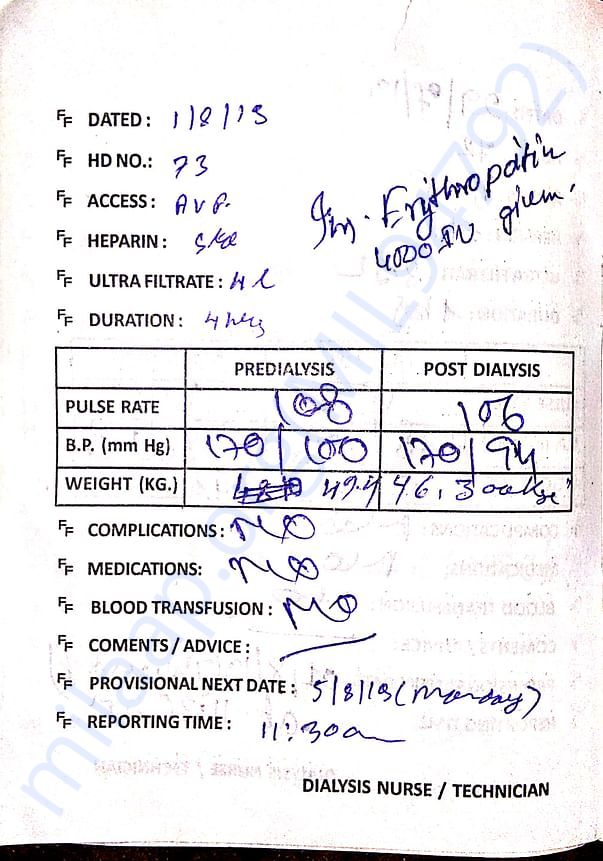 DATED : 1/8/19
HD NO.: 73
ACCESS : AVF.
HEPARIN :
Inj. Erythropatin
4000 IU given.
ULTRA FILTRATE : 4 L
DURATION : 4 hrs
PREDIALYSIS POST DIALYSIS
PULSE RATE 108 106
B.P. (mm Hg) 170/100 170/94
WEIGHT (KG.) 49.4 46.300
COMPLICATIONS : NO
MEDICATIONS: NO
BLOOD TRANSFUSION : NO
COMENTS / ADVICE :
PROVISIONAL NEXT DATE : 5/8/19 (Monday)
REPORTING TIME : 11:30am
DIALYSIS NURSE / TECHNICIAN